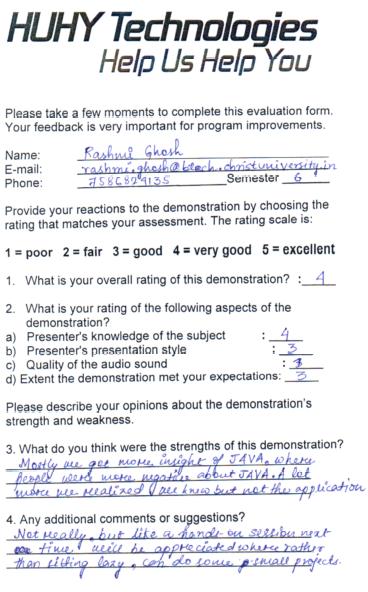 HUHY Technologies
Help Us Help You
Please take a few moments to complete this evaluation form.
Your feedback is very important for program improvements.
Name: Rashmi Ghosh
E-mail: rashmi.ghosh@btech.christuniversity.in
Phone: 7586829135 Semester 6
Provide your reactions to the demonstration by choosing the
rating that matches your assessment. The rating scale is:
1 = poor 2 = fair 3 = good 4 = very good 5 = excellent
1. What is your overall rating of this demonstration? : 4
2. What is your rating of the following aspects of the
demonstration?
a) Presenter's knowledge of the subject : 4
b) Presenter's presentation style : 3
c) Quality of the audio sound : 3
d) Extent the demonstration met your expectations: 3
Please describe your opinions about the demonstration's
strength and weakness.
3. What do you think were the strengths of this demonstration?
Mostly we got more insight of JAVA. where
people were more negative about JAVA. A lot
more we realized we knew but not the application
4. Any additional comments or suggestions?
Not really, but like a hands on session next
time will be appreciated where rather
than sitting lazy, can do some small projects.